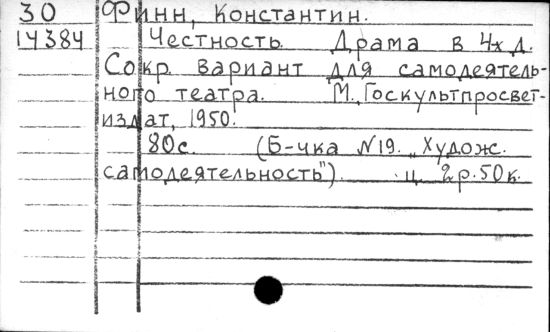 30 Финн, Константин.
14384 Честность. Драма в 4х д.
Сокр. вариант для самодеятель-
ного театра. М., Госкультпросвет-
издат, 1950.
80с. (Б-чка №19. "Худож.
самодеятельность"). ц. 2р.50к.